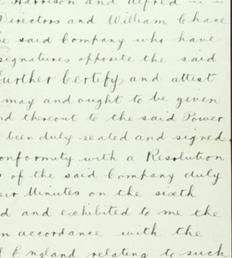 Harrison and Alfred
Directors and William Chase
said Company who have
signatures opposite the said
further Certify and attest
may and ought to be given
and thereout to the said Power
been duly sealed and signed
onformity with a Resolution
of the said Company duly
eir Minutes on the sixth
d and exhibited to me the
in accordance with the
England relating to such